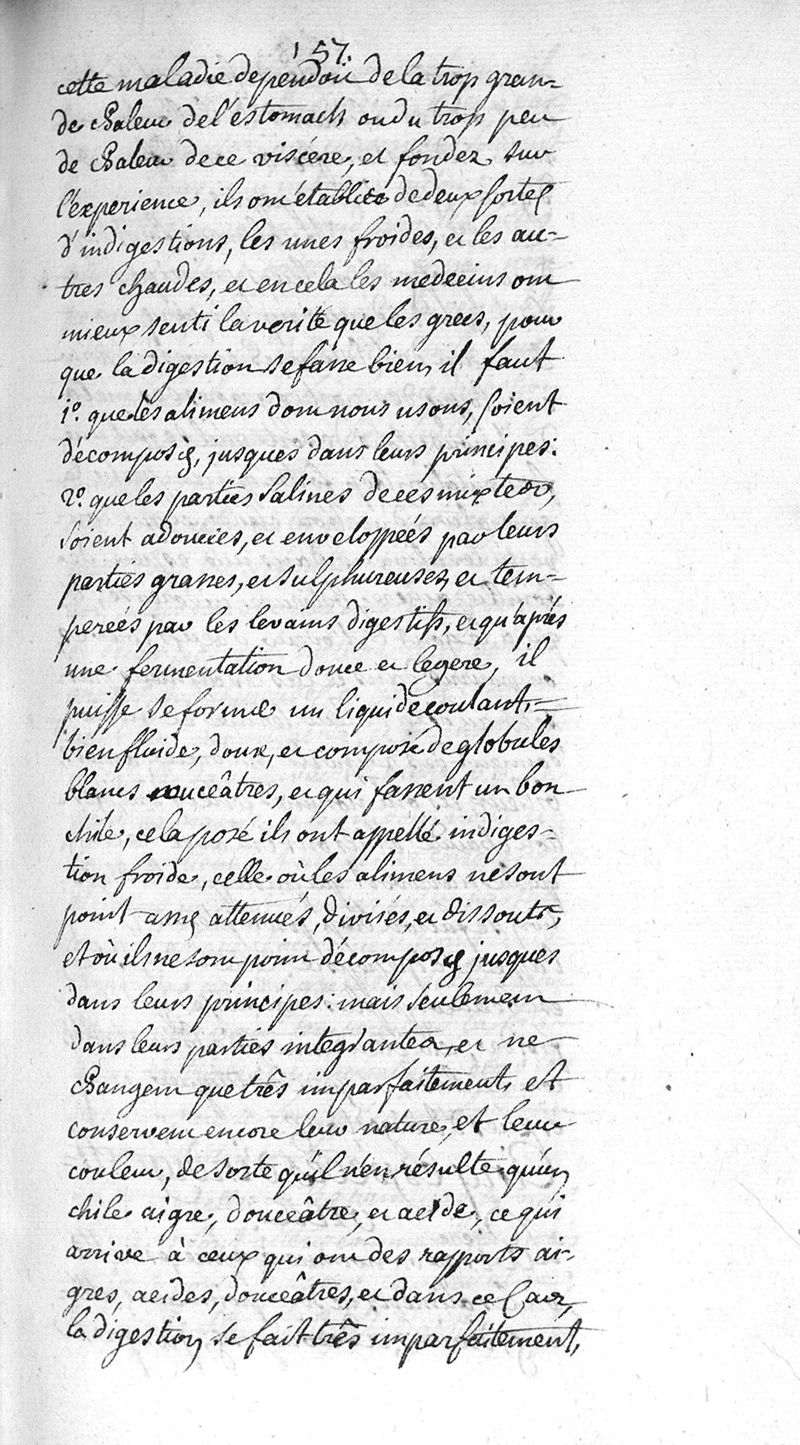 157.
cette maladie dependoit de la trop gran-
de chaleur de l'éstomach ou du trop peu
de chaleur de ce viscére, et fondez sur
l'éxperience, ils ont établies de deux sortes
d'indigestions, les unes froides, et les au-
tres chaudes, et en cela les medecins ont
mieux senti la verité que les grecs, pour
que la digestion se fasse bien, il faut
1º. que les alimens dont nous usons, soient
décomposés, jusques dans leurs principes:
2º. que les parties salines de ces mixtes,
soient adoucies, et enveloppeés par leurs
parties grasses, et sulphureuses, et tem-
pereés par les levains digestifs, et qu'aprés
une fermentation douce et legere, il
puisse se former un liquide coulant,
bien fluide, doux, et composé de globules
blancs douceâtres, et qui fassent un bon
chile, cela posé ils ont appellé indiges-
tion froide, celle où les alimens ne sont
point assés attenués, divisés, et dissouts,
et où ils ne sont point décomposés jusques
dans leurs principes: mais seulement
dans leurs parties integrantes, et ne
changent que três imparfaitement, et
conservent encore leur nature, et leur
couleur, de sorte qu'il n'en résulte qu'un
chile aigre, douceâtre, et acide, ce qui
arrive à ceux qui ont des rapports ai-
gres, acides, douceâtres, et dans ce cas,
la digestion se fait três imparfaitement,